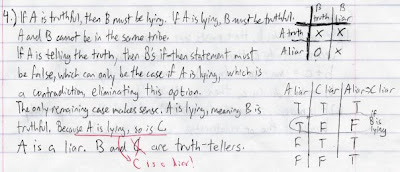 4.) If A is truthful, then B must be lying. If A is lying, B must be truthful.
A and B cannot be in the same tribe.
If A is telling the truth, then B's if-then statement must
be false, which can only be the case if A is lying, which is
a contradiction, eliminating this option.
The only remaining case makes sense. A is lying, meaning B is
truthful. Because A is lying, so is C.
A is a liar. B and C are truth-tellers.
C is a liar!
B truth B liar
A truth X X
A liar O X
A liar C liar A liar→C liar
T T T
T F F if B is lying
F T T
F F T